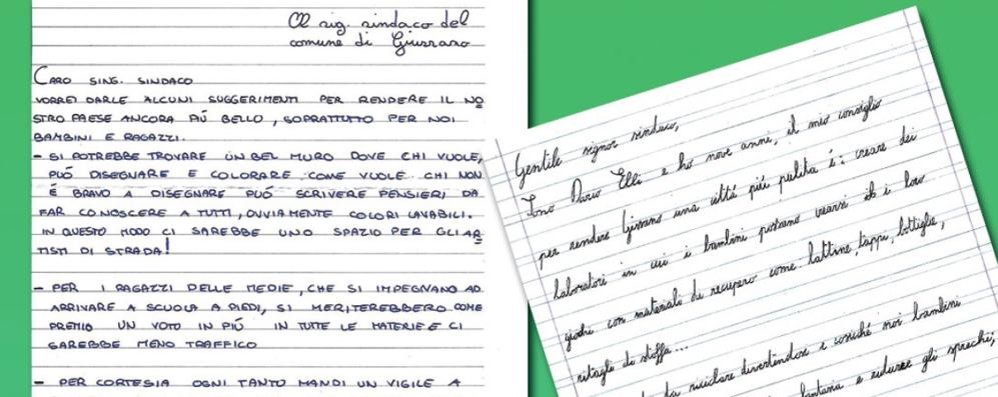 Al sig. sindaco del
comune di Giussano
CARO SING. SINDACO
VORREI DARLE ALCUNI SUGGERIMENTI PER RENDERE IL NO
STRO PAESE ANCORA PIÚ BELLO, SOPRATTUTTO PER NOI
BAMBINI E RAGAZZI.
- SI POTREBBE TROVARE UN BEL MURO DOVE CHI VUOLE,
PUÓ DISEGNARE E COLORARE COME VUOLE CHI NON
É BRAVO A DISEGNARE PUÓ SCRIVERE PENSIERI DA
FAR CONOSCERE A TUTTI, OVVIAMENTE COLORI LAVABILI.
IN QUESTO MODO CI SAREBBE UNO SPAZIO PER GLI AR
TISTI DI STRADA!
- PER I RAGAZZI DELLE MEDIE, CHE SI IMPEGNANO AD
ARRIVARE A SCUOLA A PIEDI, SI MERITEREBBERO COME
PREMIO UN VOTO IN PIÚ IN TUTTE LE MATERIE E CI
SAREBBE MENO TRAFFICO
- PER CORTESIA OGNI TANTO MANDI UN VIGILE A
Gentile signor sindaco,
Sono Elli e ho nove anni, il mio consiglio
per rendere Giussano una cittá piú pulita é: creare dei
laboratori in cui i bambini possano crearsi i loro
giochi con materiali da recupero come: lattine, tappi, bottiglie,
ritagli di stoffa...
da riciclare divertendosi e cosiché noi bambini
e ridurre gli sprechi;